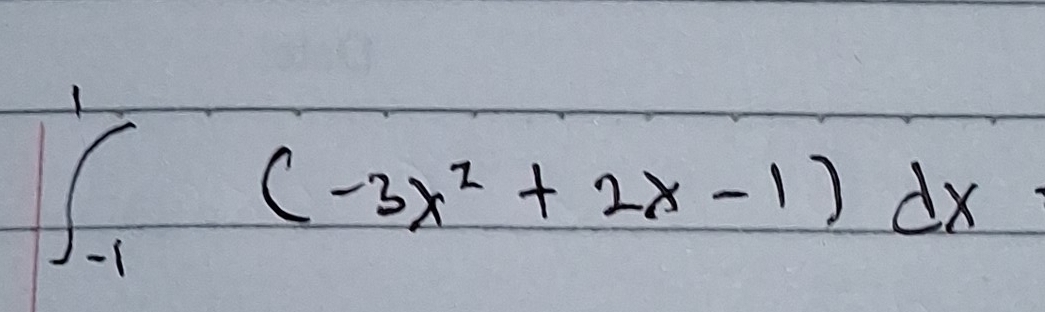 ∫₋₁¹ (-3x² + 2x - 1) dx